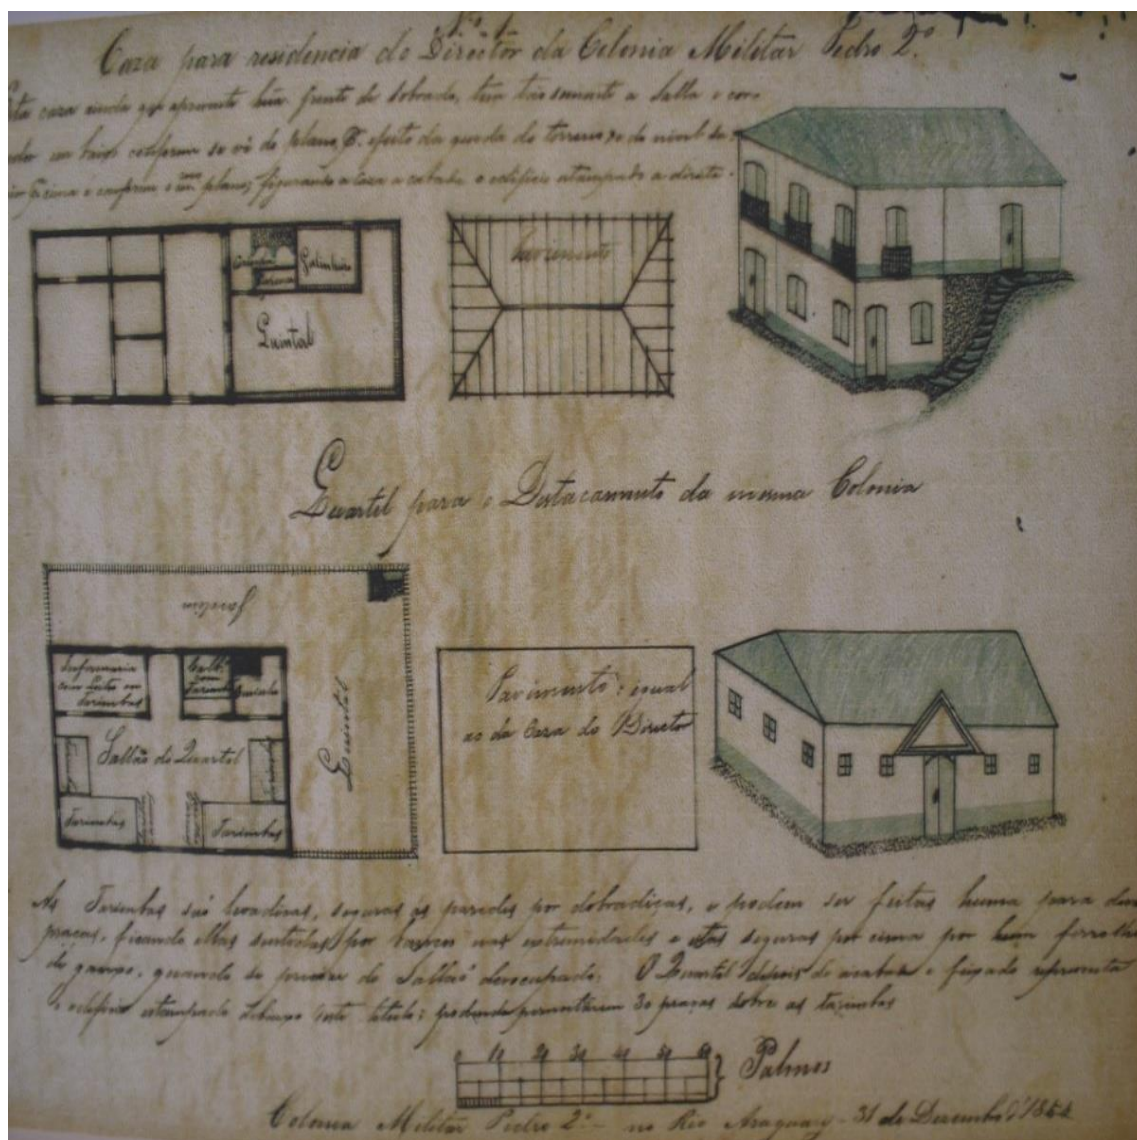 Nº 1
Caza para residencia do Director da Colonia Militar Pedro 2º
Esta caza ainda que aprezente hũa frente de sobrado, tem tão somente a Salla e corre-
dor em baixo conforme se vê do plano, effeito da queda do terreno, e do nivel
cima é conforme o plano; figurando a Caza acabada o edificio estampado a direita.
Pavimento
Galinheiro
Quintal
Quartel para o Destacamento da mesma Colonia
Jardim
Infermaria
com Leitos ou
Tarimbas
com
Quintal
Sallão do Quartel
Tarimbas
Tarimbas
Pavimento: igual
ao da Caza do Director
As Tarimbas são levadiças, seguras ás paredes por dobradiças, e podem ser feitas huma para duas
praças, ficando ellas sustidas por nas extremidades e estas seguras por cima por hum ferrolho
de gampo, quando se precizar do Sallão desocupado. O Quartel depois de acabado e feixado reprezenta
o edificio estampado debaixo deste titulo; podendo pernoitarem 30 praças sobre as tarimbas
0 10 20 30 40 50 60
Palmos
Colonia Militar Pedro 2º - no Rio Araguary - 31 de Dezembro